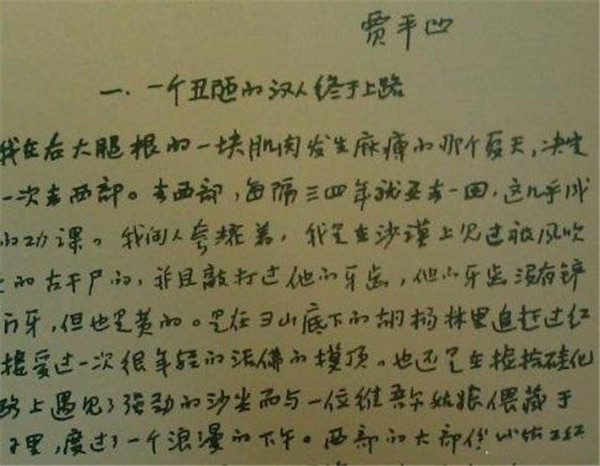 贾平凹
一、一个丑陋的汉人终于上路
我在右大腿根的一块肌肉发生麻痹的那个夏天，决定
一次去西部。去西部，每隔三四年就要去一回，这几乎成
的功课。我向人夸耀着，我是在沙漠上见过被风吹
的古干尸的，并且敲打过他的牙齿，他的牙齿没有
的牙，但也是黄的。是在山底下的胡杨林里追赶过红
接受过一次很年轻的活佛的摸顶。也还是在捡拾硅化
路上遇见了强劲的沙尘而与一位维吾尔姑娘偎藏于
里，度过了一个浪漫的下午。西部的大部份